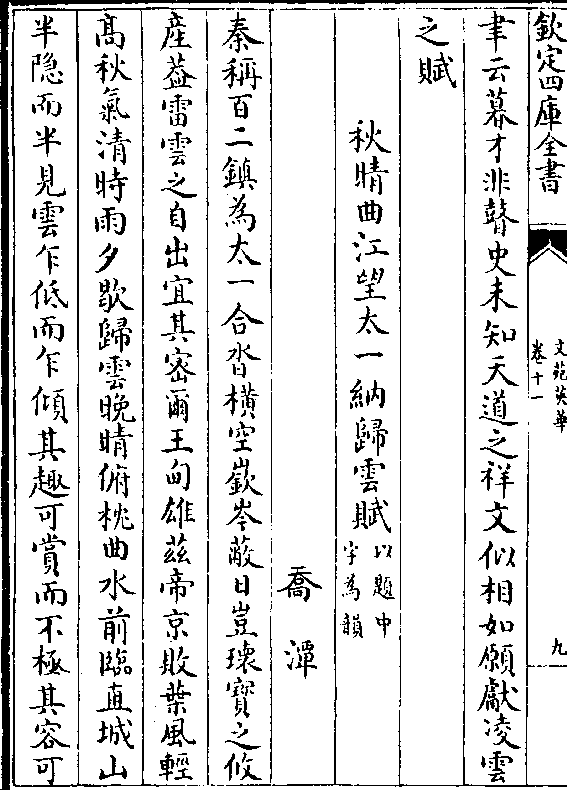 欽定四庫全書
文苑英華
卷十一
九
聿云慕才非瞽史未知天道之祥文似相如願獻凌雲
之賦
秋晴曲江望太一納歸雲賦以題中
字為韻
喬潭
秦稱百二鎮為太一合沓橫空嶔岑蔽日豈瓌寶之攸
產葢雷雲之自出宜其密爾王甸雄茲帝京敗葉風輕
髙秋氣清時雨夕歇歸雲晚晴俯枕曲水前臨直城山
半隠而半見雲乍低而乍傾其趣可賞而不極其容可